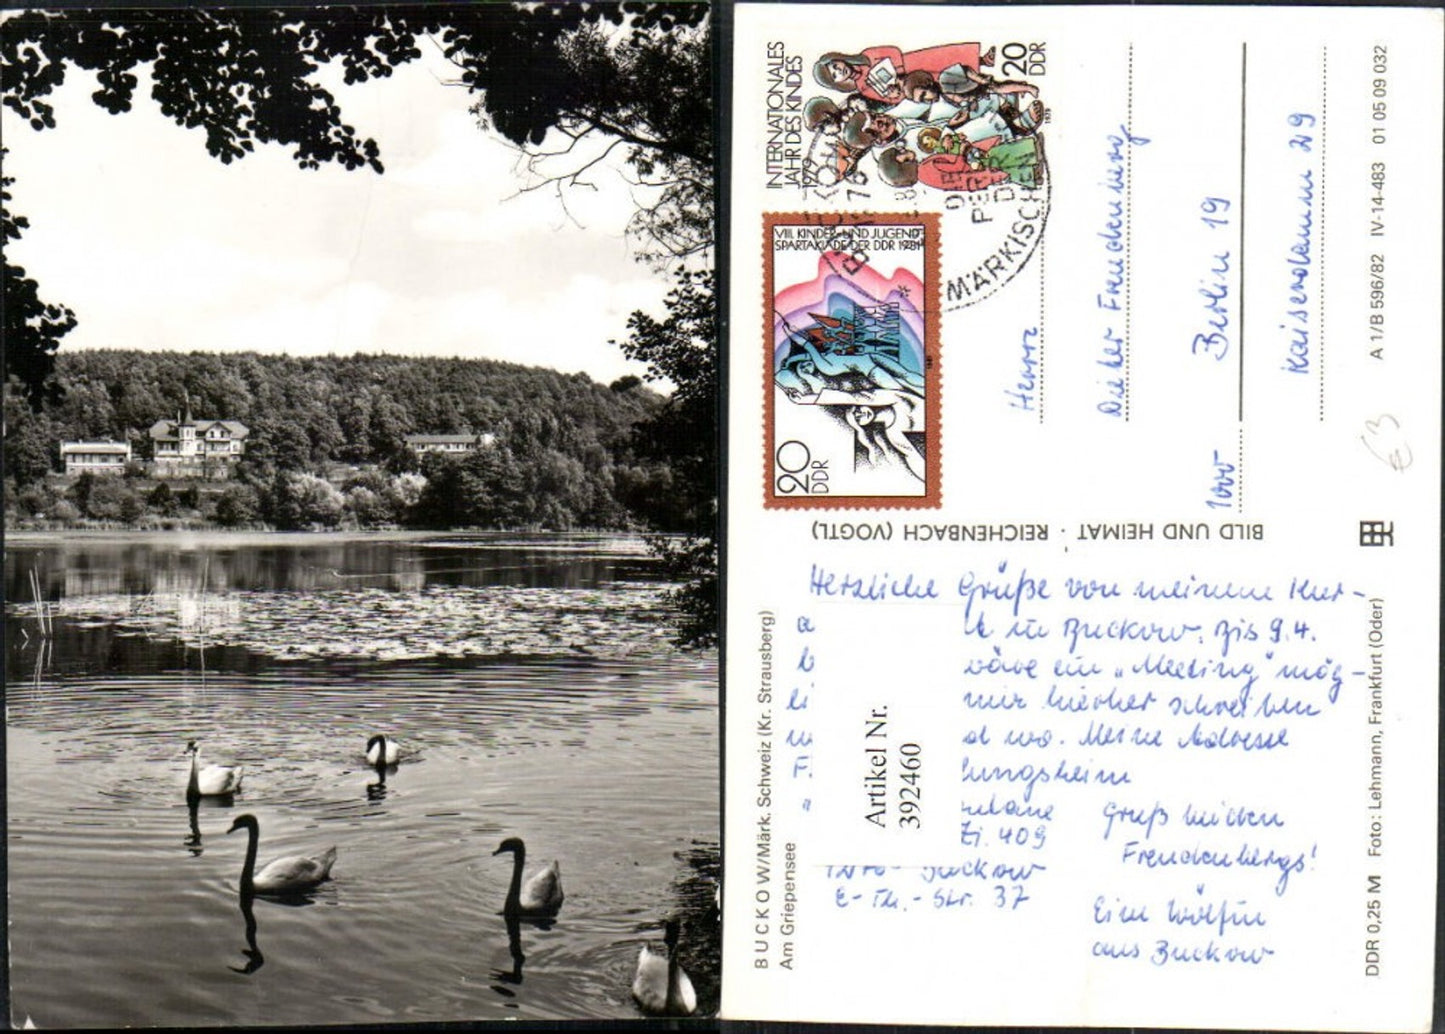 INTERNATIONALES
JAHR DES KINDES
1979
20
DDR
VIII. KINDER- UND JUGEND-
SPARTAKIADE DER DDR 1981
20
DDR
PERLE
DER
MÄRKISCHEN
Herrn
Dieter Freudenberg
Berlin 19
Kaiserdamm 29
1000
A 1/B 596/82 IV-14-483 01 05 09 032
€3
BILD UND HEIMAT · REICHENBACH (VOGTL)
Herzliche Grüße von meinem Kur-
in Buckow. Bis 9.4.
wäre ein "Meeting" mög-
mir hierher schreiben
wo. Meine Adresse
Zi. 409
Buckow
E-Th.-Str. 37
Gruß beiden
Freudenbergs!
Eine Wölfin
aus Buckow
Artikel Nr.
392460
BUCKOW/Märk. Schweiz (Kr. Strausberg)
Am Griepensee
DDR 0,25 M Foto: Lehmann, Frankfurt (Oder)